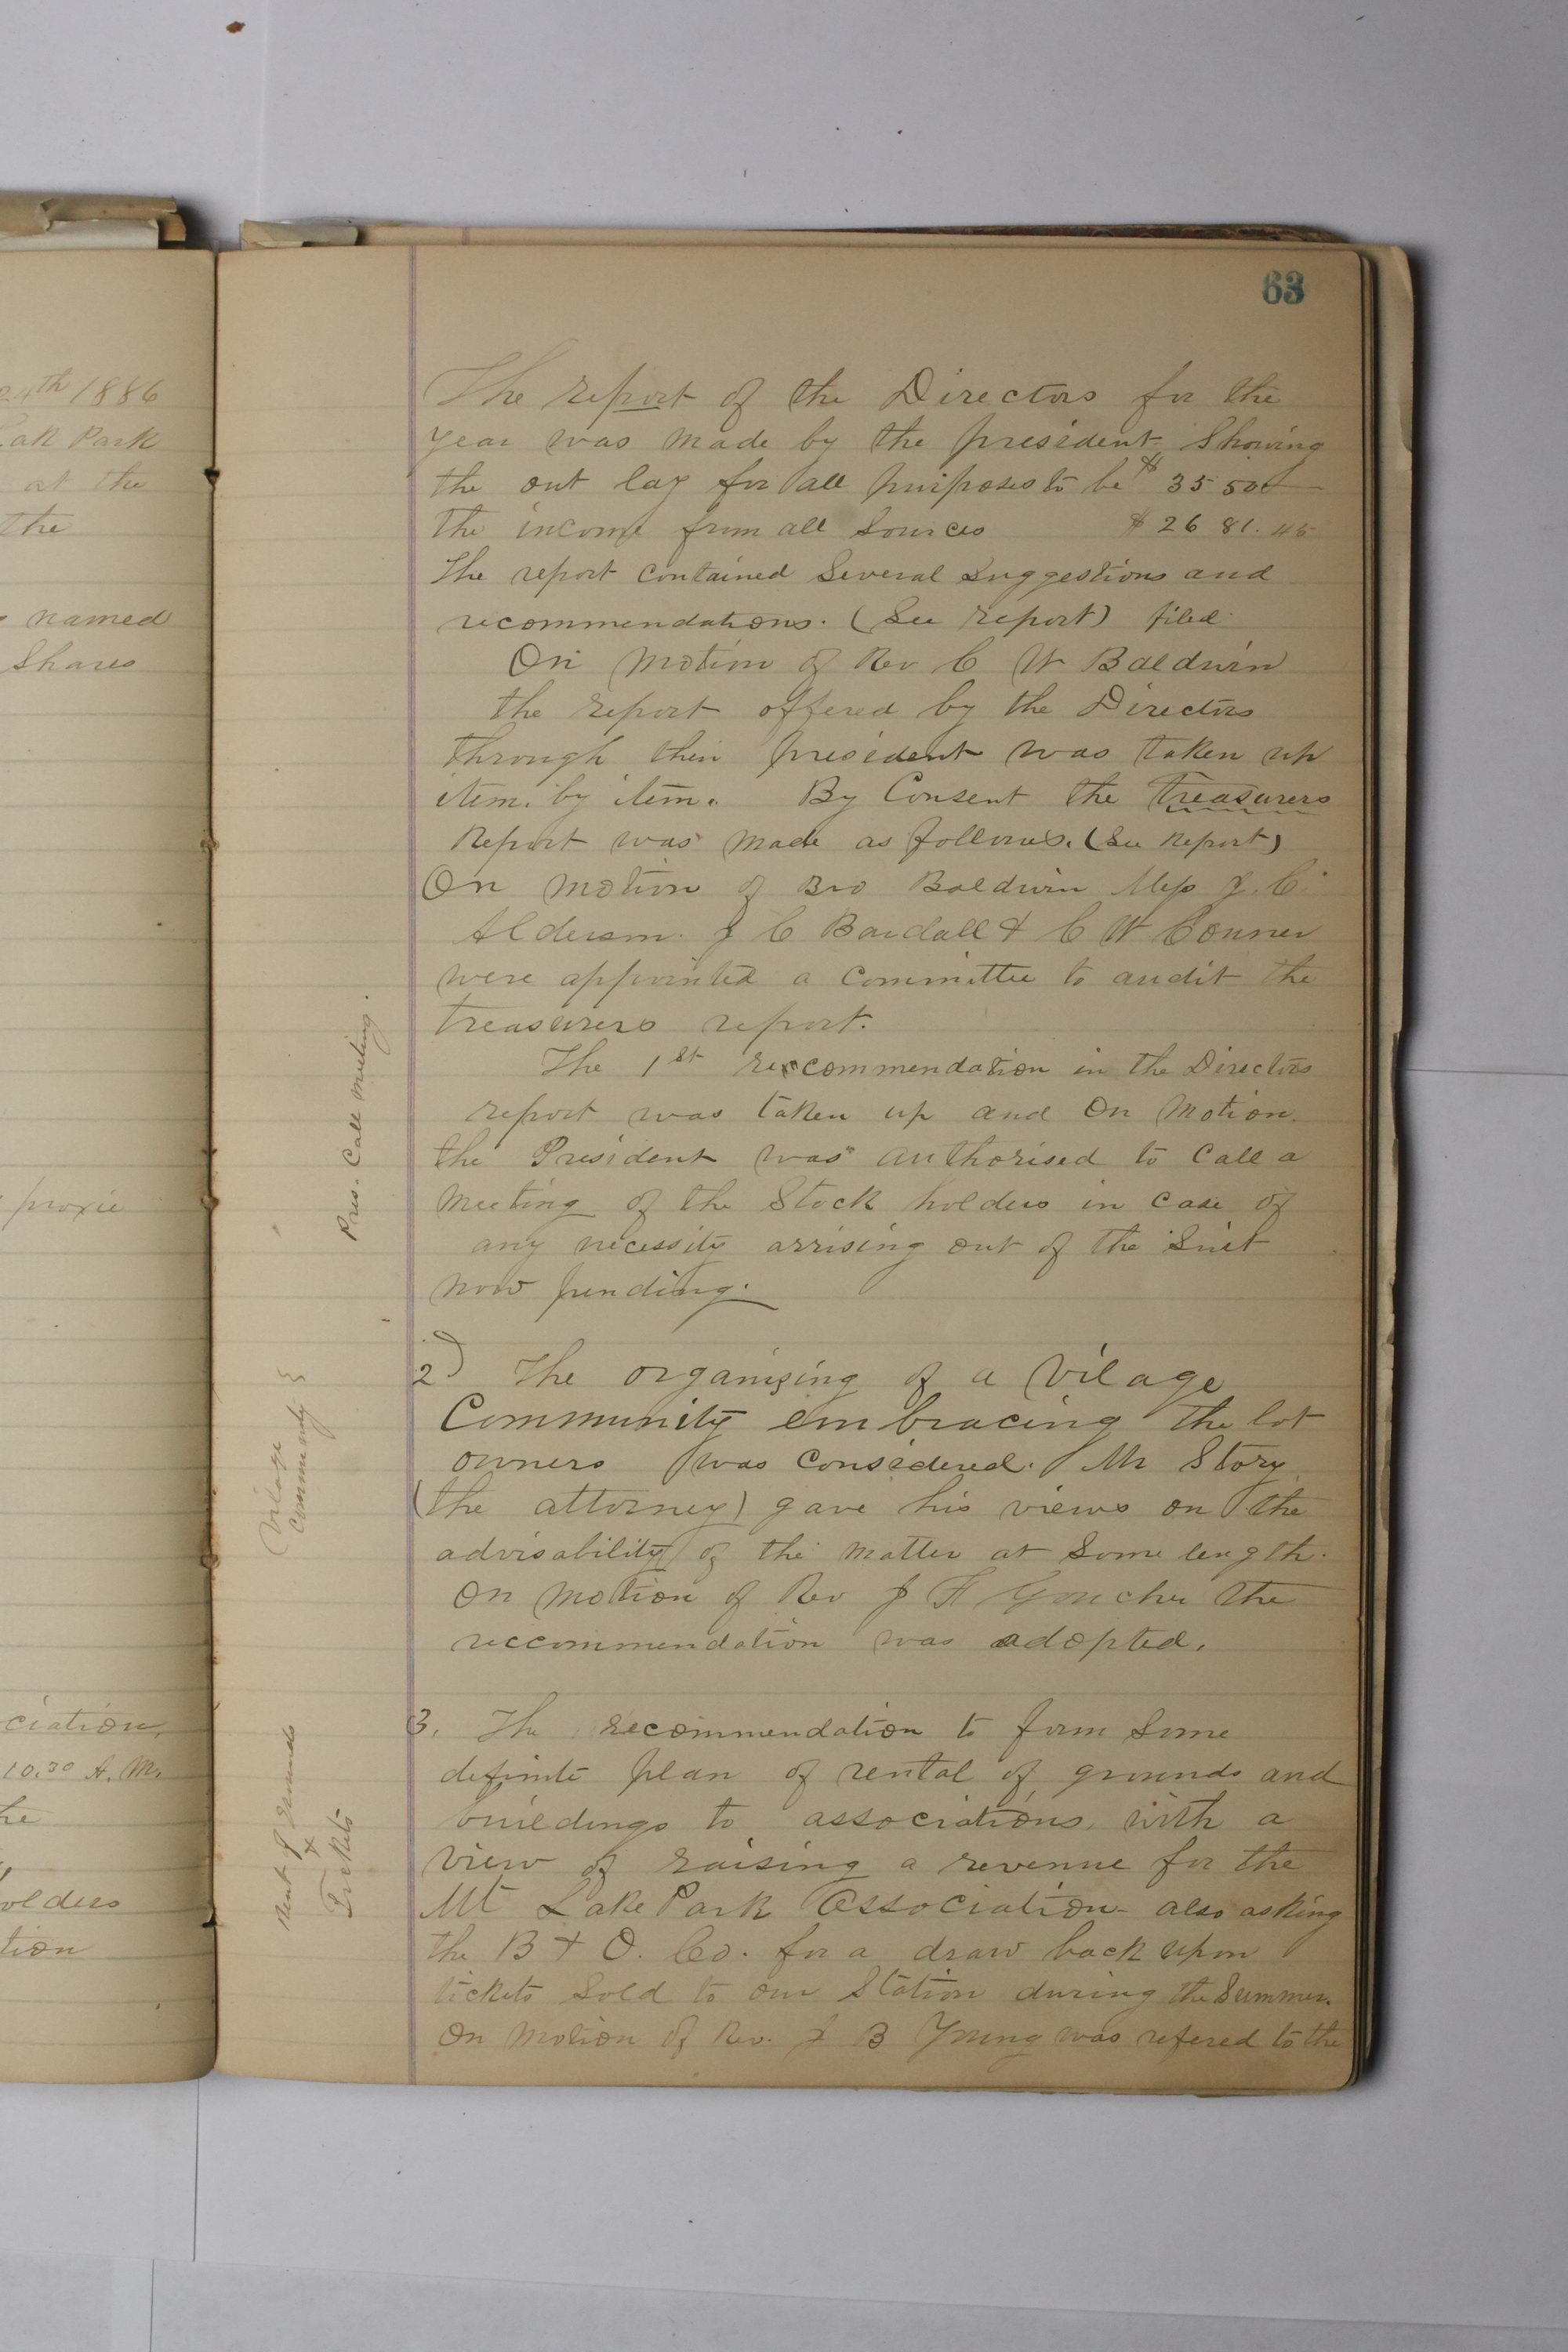 24th 1886
Lak Park
at the
the
named
Shares
proxie
ciation,
10.30 A. M.
he
olders
tion
63
The report of the Directors for the
year was made by the president. Showing
the out lay for all purposes to be $ 35 500
the income from all Sources $ 26 81. 45
The report contained Several Suggestions and
recommendations. (See report) filed
On motion of Rev C W Baldwin
the report offered by the Directors
through their president was taken up
item. by item. By Consent the Treasurers
Report was made as follows. (See Report)
On motion of Bro Baldwin Mess J. C.
Alderson. J C Bardall & C W Conner
were appointed a Committee to audit the
treasurers report.
Pres. Call meeting.
The 1st reccommendation in the Directors
report was taken up and On Motion.
the President was authorised to Call a
Meeting of the Stock holders in Case of
any necessity arrising out of the Suit
now pending.
Vilage
Community
2) The organizing of a Vilage
Community embracing the lot
owners was Considered. Mr Story
(the attorney) gave his views on the
advisability of the matter at Some length.
On motion of Rev J F Goucher the
reccommendation was adopted.
Rent of Grounds
&
Tickets
3. The recommendation to form Some
definite plan of rental of grounds and
buildings to associations, with a
view of raising a revenue for the
Mt Lake Park Association - also asking
the B & O. Co. for a draw back upon
tickets Sold to our Station during the Summer.
On Motion of Rev. J B Young was refered to the